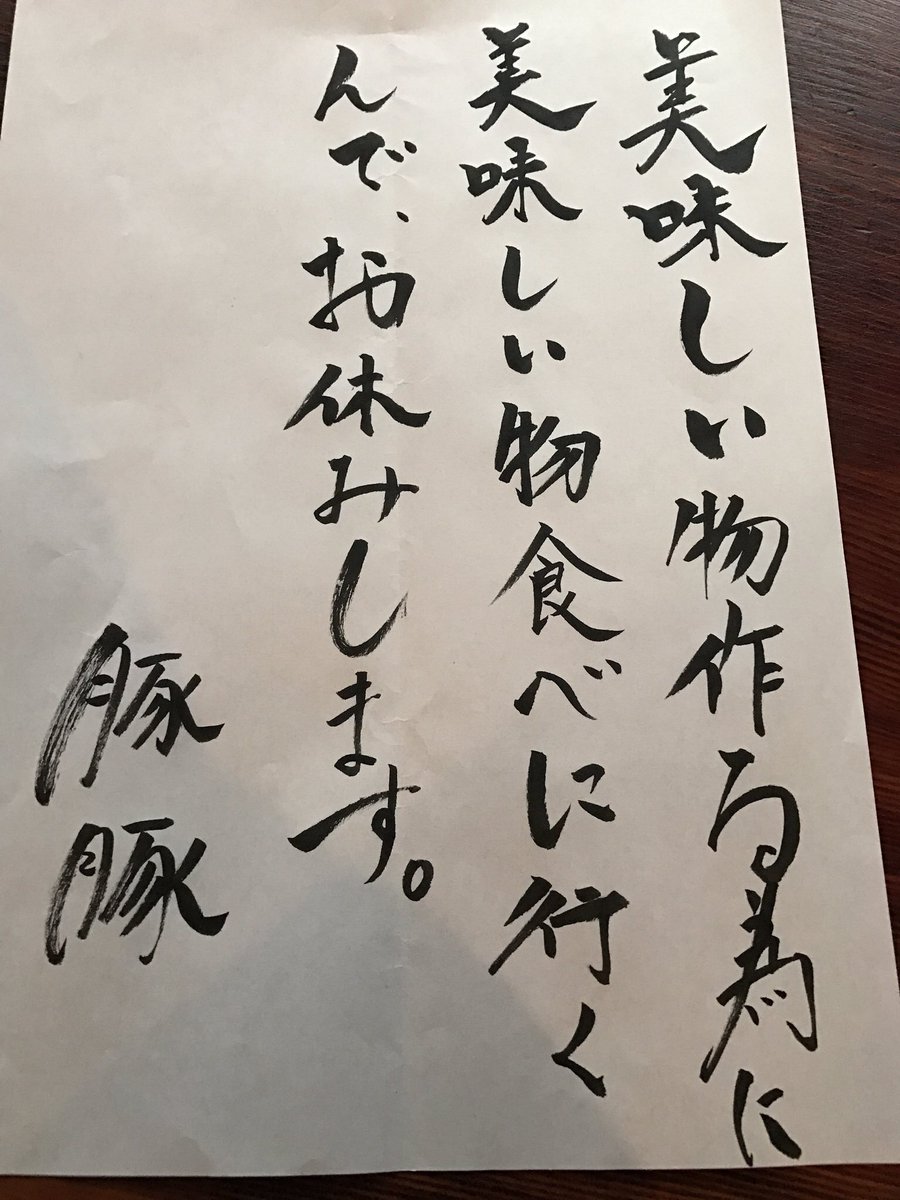 美味しい物作る為に
美味しい物食べに行く
んで、お休みします。
豚豚